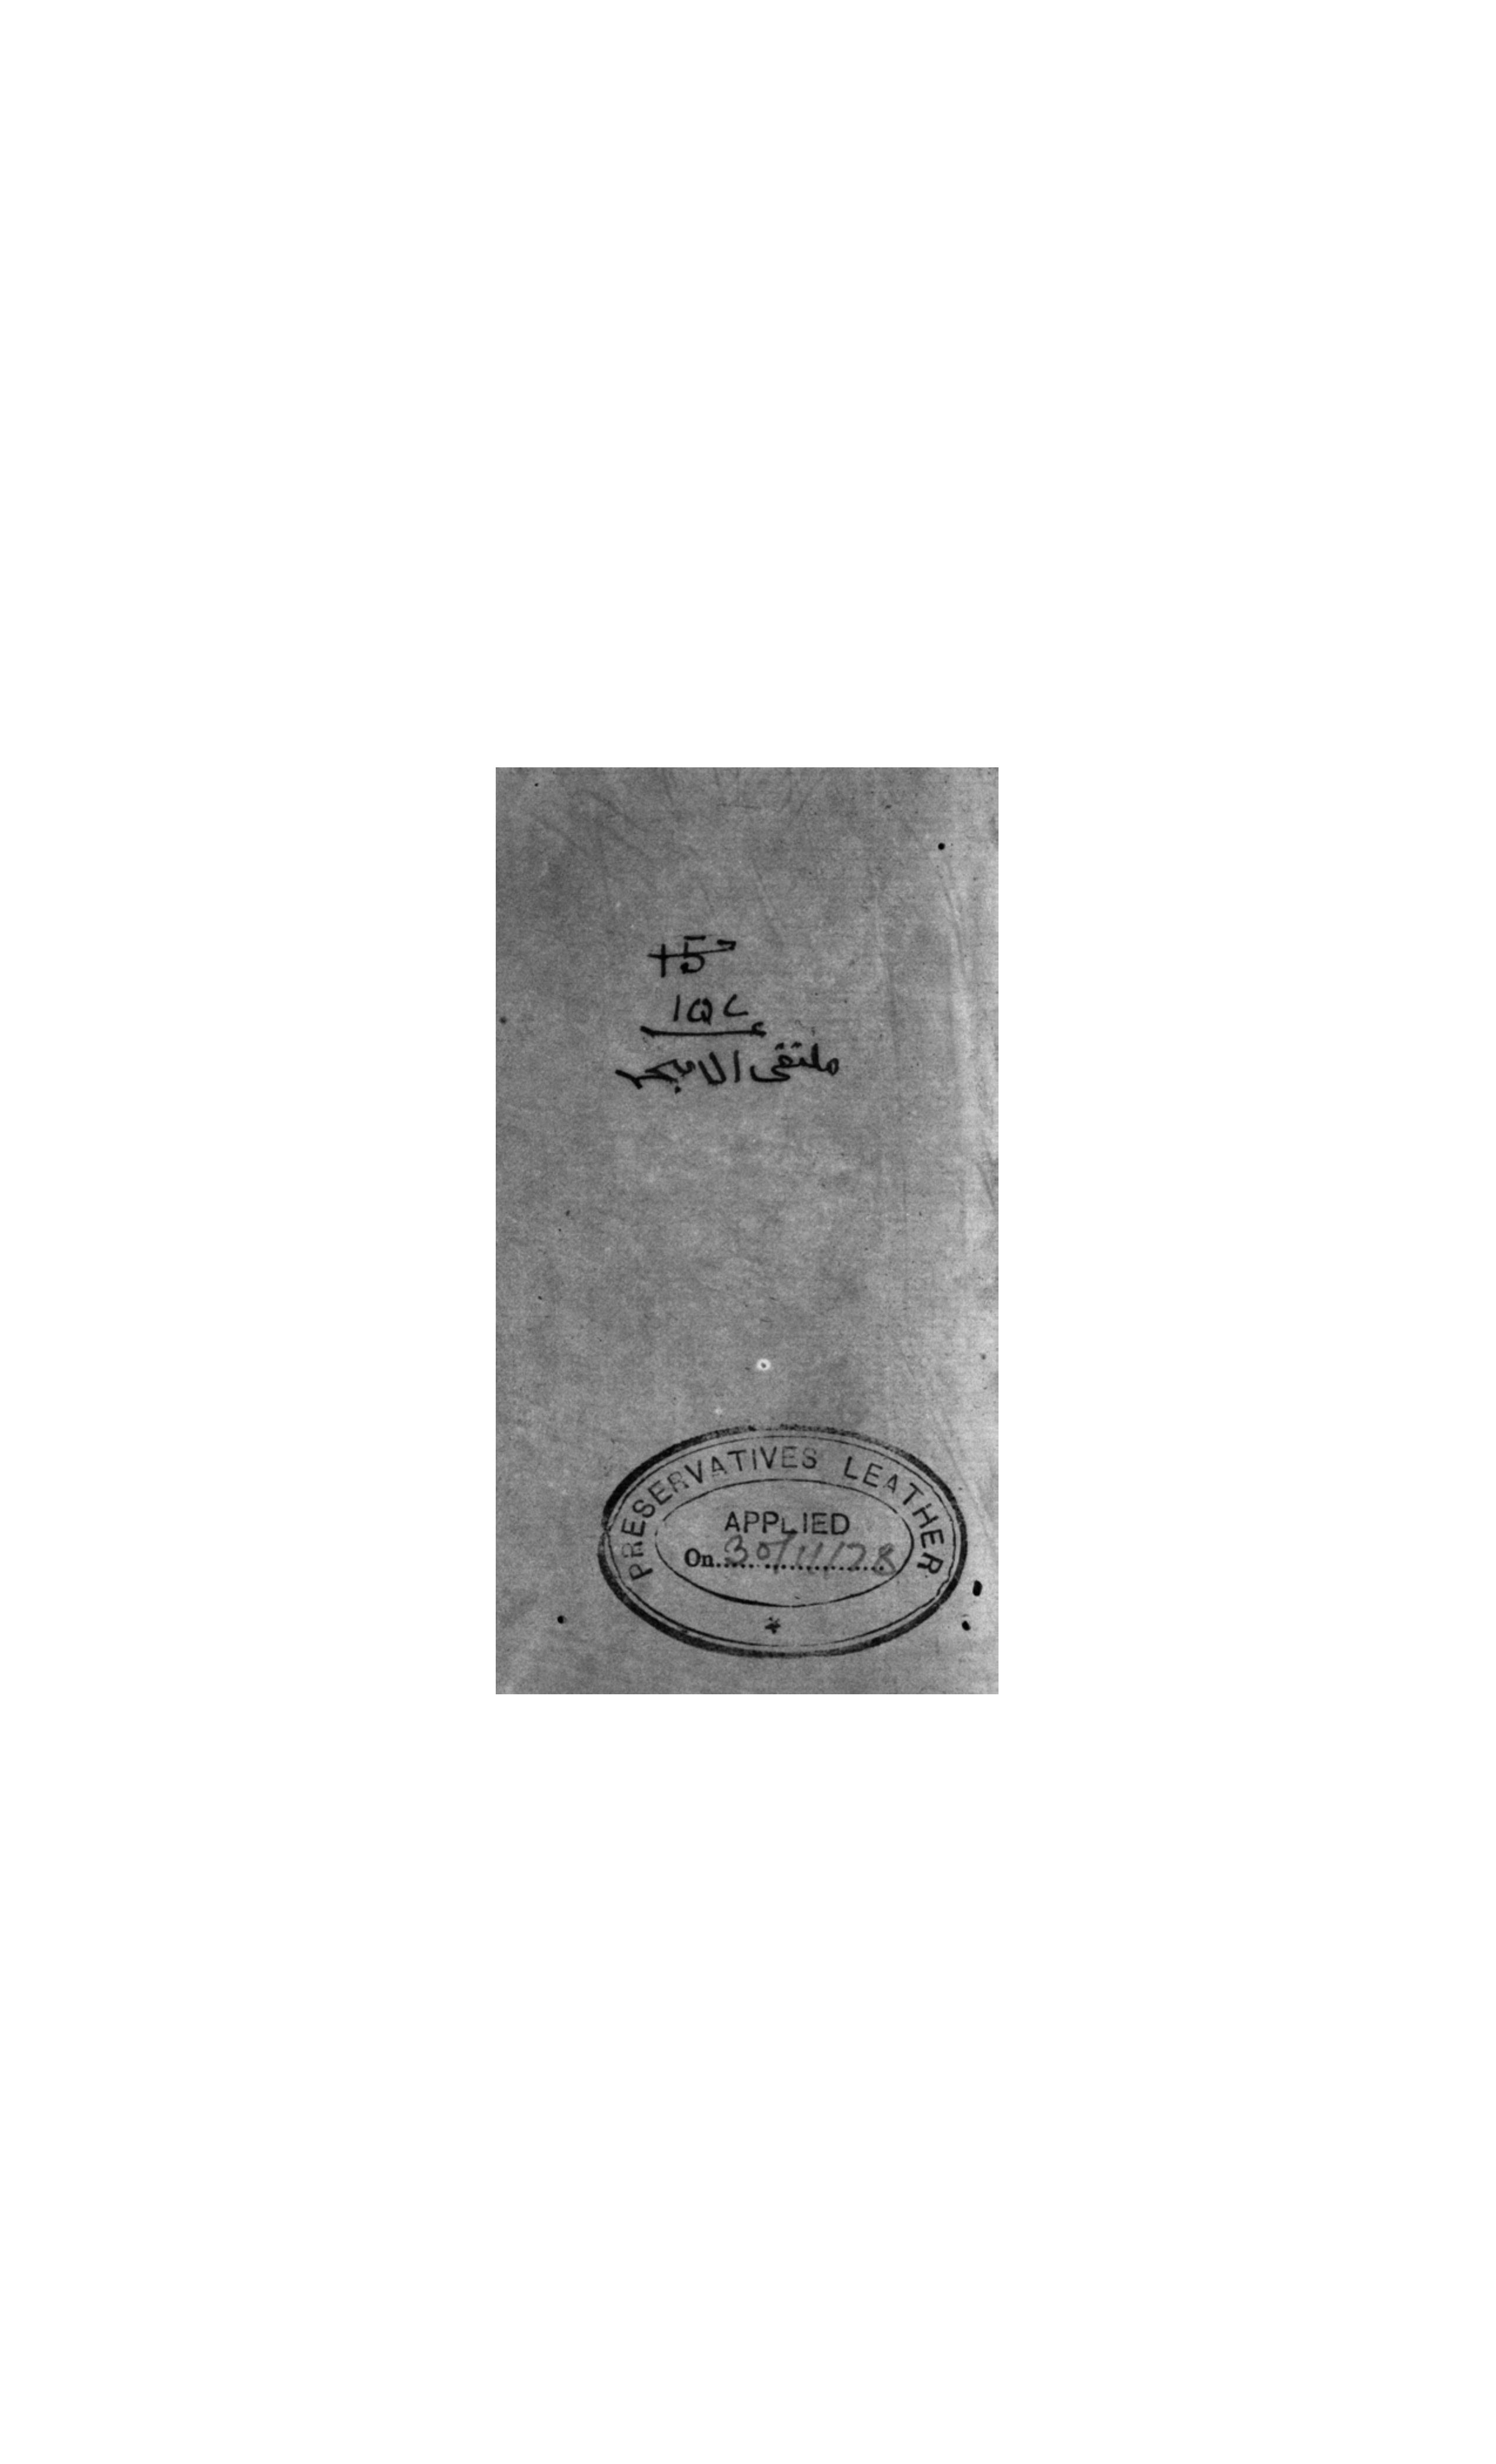 ملتقى الابحر
PRESERVATIVES LEATHER
APPLIED
On 30/11/78